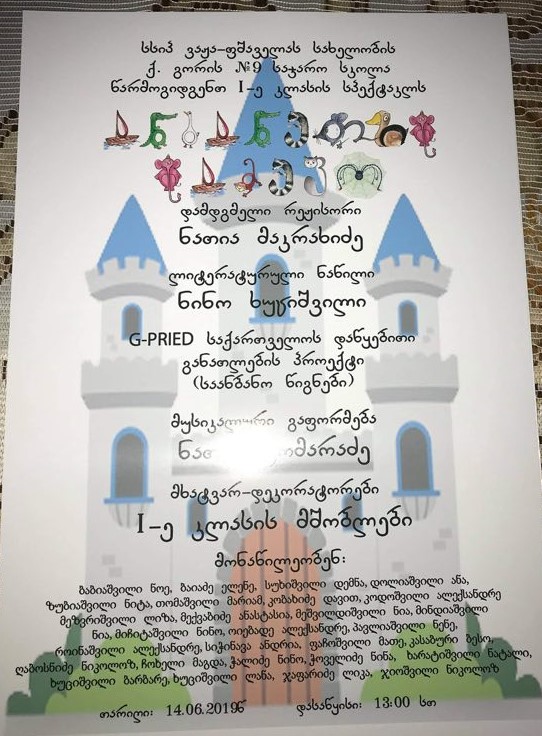 სსიპ ვაჟა-ფშაველას სახელობის
ქ. გორის №9 საჯარო სკოლა
წარმოგიდგენთ I-ე კლასის სპექტაკლს
დამდგმელი რეჟისორი
ნათია მაკრახიძე
ლიტერატურული ნაწილი
ნინო ხუციშვილი
G-PRIED საქართველოს დაწყებითი
განათლების პროექტი
(საანბანო წიგნები)
მუსიკალური გაფორმება
მხატვარ-დეკორატორები
I-ე კლასის მშობლები
მონაწილეობენ:
ბაბიაშვილი ნოე, ბაიაძე ელენე, სუხიშვილი დემნა, დოლიაშვილი ანა,
ზუბიაშვილი ნიტა, თომაშვილი მარიამ, კობახიძე დავით, კოდოშვილი ალექსანდრე
მეზვრიშვილი ლიზა, მექვაბიძე ანასტასია, მეშვილდიშვილი ნია, მინდიაშვილი
ნია, მიჩიტაშვილი ნინო, ოიებაძე ალექსანდრე, პავლიაშვილი ნენე,
როინაშვილი ალექსანდრე, სიჭინავა ანდრია, ფაჩოშვილი მათე, კასაბური ბესო,
ღაბოსნიძე ნიკოლოზ, ჩოხელი მაგდა, ჭალიძე ნინო, ჭოველიძე ნინა, ხარატიშვილი ნატალი,
ხუციშვილი ბარბარე, ხუციშვილი ლანა, ჯაფარიძე ლიკა, ჯიოშვილი ნიკოლოზ
თარიღი: 14.06.2019წ დასაწყისი: 13:00 სთ